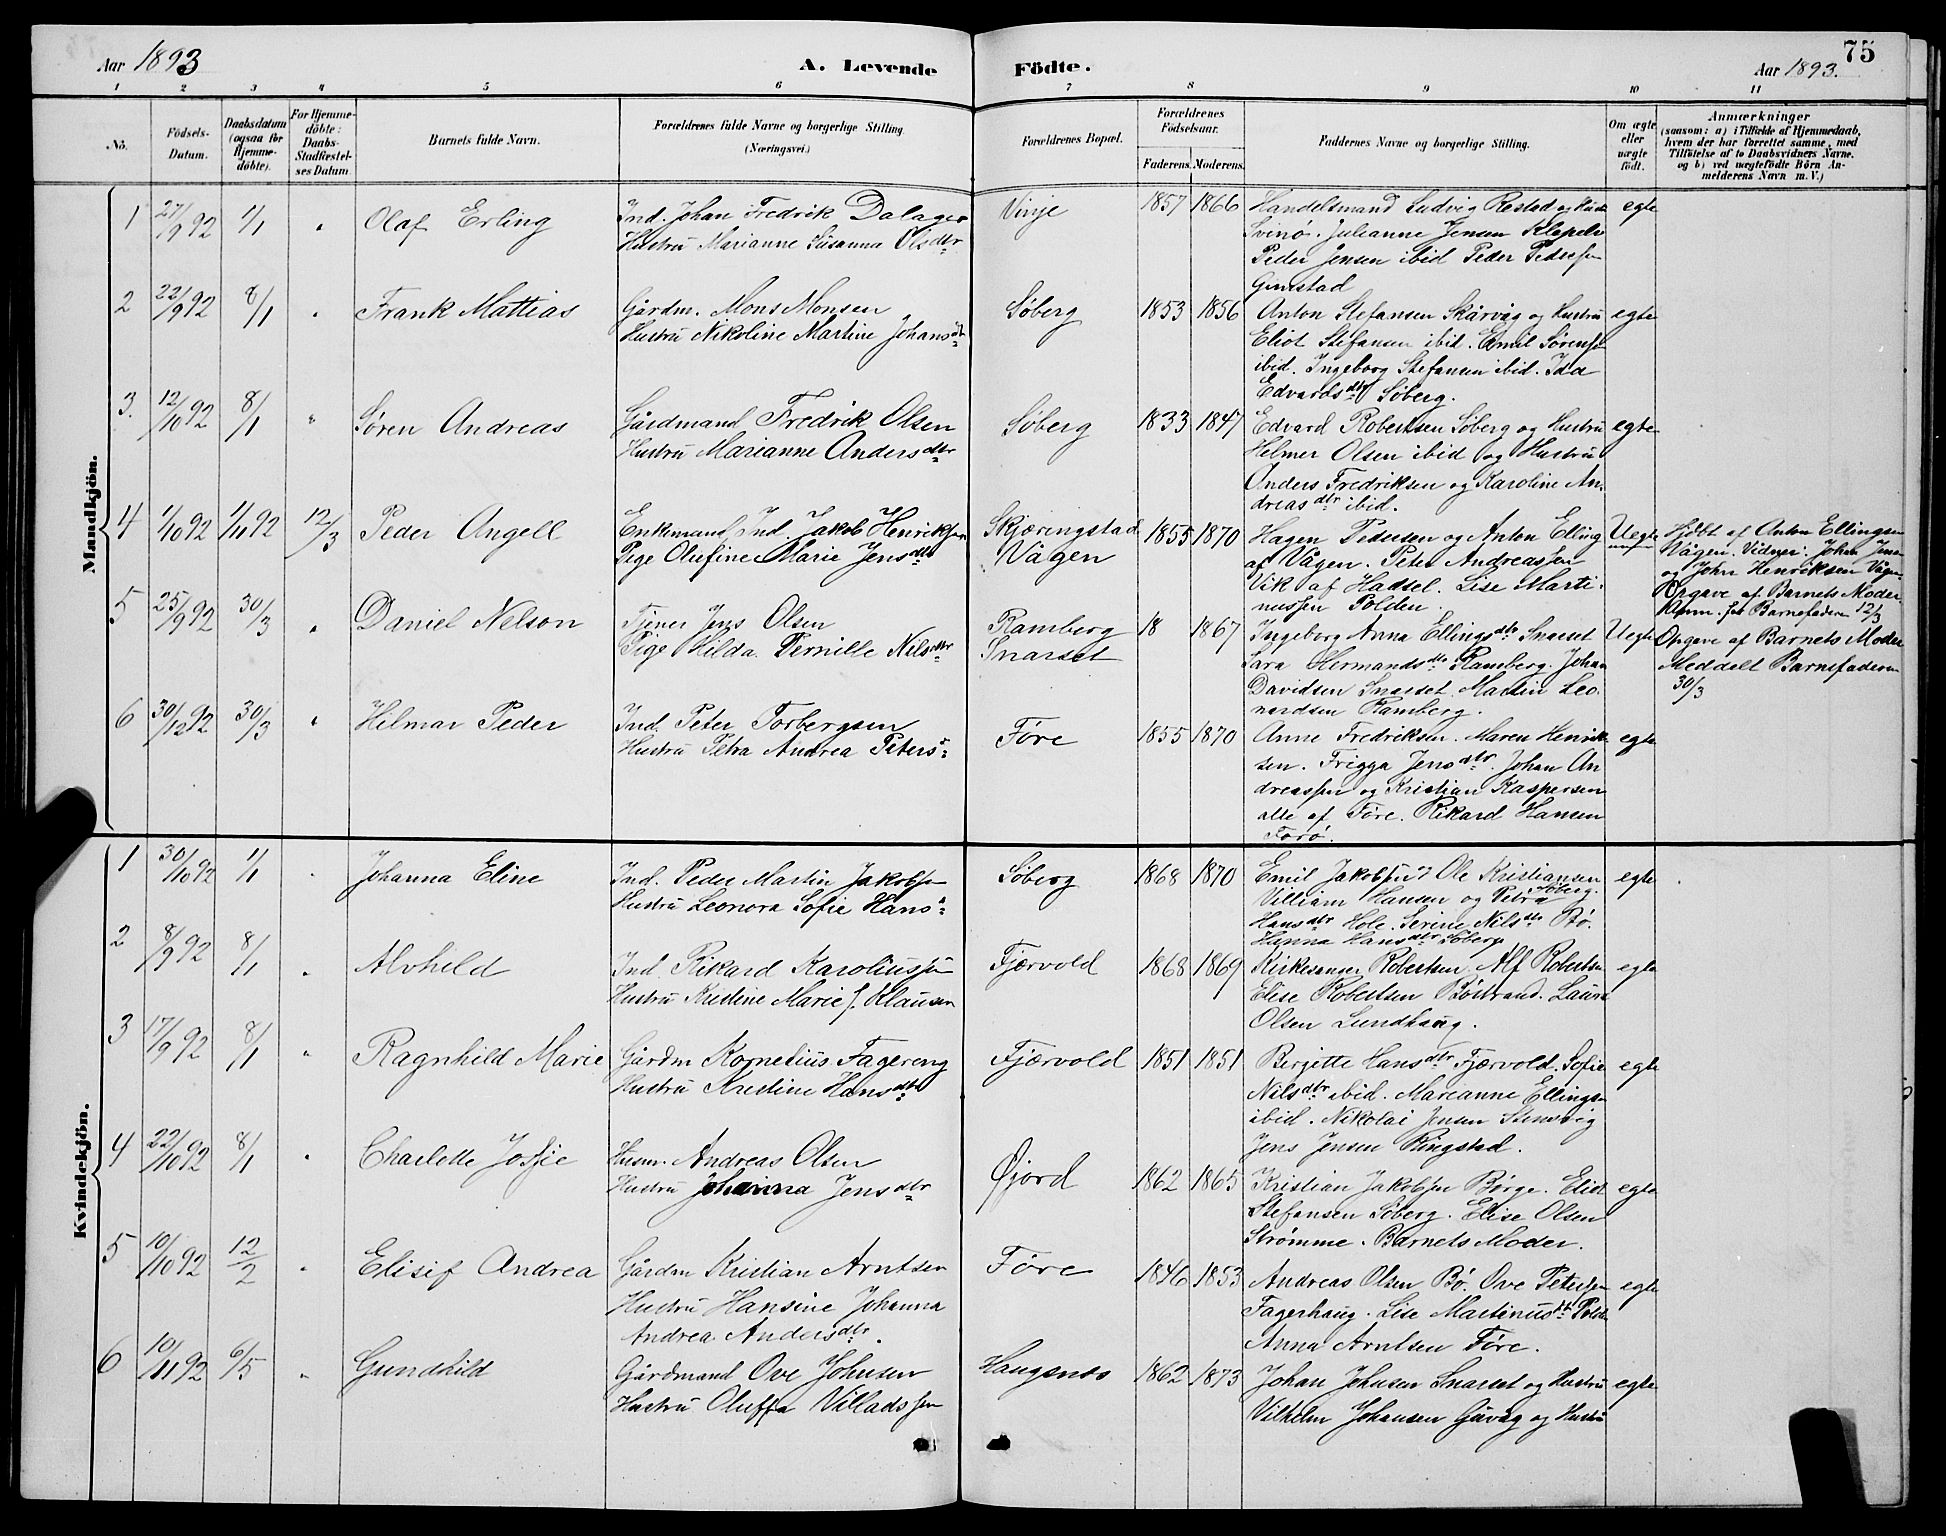 Aar 1893
A. Levende Födte.
75
Aar 1893.
1 2 3 4 5 6 7 8 9 10 11
No.
Födsels-Datum.
Daabsdatum (ogsaa for Hjemme-döbte).
For Hjemme-döbte: Daabs-Stadfæstel-ses Datum.
Barnets fulde Navn.
Forældrenes fulde Navne og borgerlige Stilling.
(Næringsvei.)
Forældrenes Bopæl.
Forældrenes Födselsaar.
Faderens. Moderens.
Faddernes Navne og borgerlige Stilling.
Om ægte eller uægte födt.
Anmærkninger
(saasom: a) i Tilfælde af Hjemmedaab,
hvem der har forrettet samme, med
Tilföielse af to Daabsvidners Navne,
og b) ved uægtefödte Börn An-
melderens Navn m. V.)
Mandkjön.
1 27/9 92 1/1 " Olaf Erling
Ind. Johan Fredrik Dalager
Hustru Marianne Susanna Olsdtr
Vinje 1857 1866
Handelsmand Ludvig Restad og Hustru
Svinø. Julianne Jensen Klepels
Peder Jensen ibid Peder Pedersen
Gimstad
egte
2 22/9 92 8/1 " Frank Mattias
Gårdm. Mons Monsen
Hustru Nikoline Martine Johansdt
Søberg 1853 1856
Anton Stefansen Skårvåg og Hustru
Eliot Stefansen ibid. Emil Sørensen
ibid. Ingeborg Stefansen ibid. Ida
Edvardsdtr Søberg.
egte
3. 12/10 92 8/1 " Søren Andreas
Gårdmand Fredrik Olsen
Hustru Marianne Andersdtr
Søberg 1833 1847
Edvard Robertsen Søberg og Hustru
Helmer Olsen ibid og Hustru
Anders Fredriksen og Karoline An-
dreasdtr ibid.
egte
4 1/10 92 1/11 92 12/3 Peder Angell
Enkemand, Ind. Jakob Henriksen
Pige Olufine Marie Jensdtr
Skjæringstad
Vågen
1855 1870
Hagen Pedersen og Anton Elling
af Vågen. Peter Andreassen
Vik af Hadsel. Lise Marti-
nussen Polden.
Uegte
Hjdbt af Anton Ellingsen
Vågen. Vidner: Johan Jensen
og John Henriksen Vågen
Opgave af Barnets Moder.
Anm. for Barnefaderen 12/3
5 25/9 92 30/3 " Daniel Nelson
Tjener Jens Olsen
Pige Hilda Pernille Nilsdtr
Ramberg
Snarset
18 1867
Ingeborg Anna Ellingsdtr Snarset
Sara Hermandsdtr Ramberg. Johan
Davidsen Snarset. Martin Leo-
nardsen Ramberg.
Uegte
Opgave af Barnets Moder
Meddelt Barnefaderen
30/3
6 30/12 92 30/3 " Hilmar Peder
Ind. Peter Torbergsen
Hustru Petra Andrea Peters
Føre 1855 1870
Anne Fredriksen. Maren Henrik-
sen. Frigga Jensdtr. Johan An-
dreassen og Kristian Kaspersen
alle af Føre. Rikard Hansen
Forø.
egte
Kvindekjön.
1 30/10 92 1/1 " Johanna Eline
Ind. Peder Martin Jakobsen
Hustru Leonora Sofie Hans
Søberg 1868 1870
Emil Jakobsen Ole Kristiansen
Søberg.
Villiam Hansen og Petra
Hansdtr Hole. Serine Nilsdtr Bø.
Hanna Hansdtr Søberg
egte
2 8/9 92 8/1 " Alvhild
Ind. Rikard Karoliussen
Hustru Kristine Marie f. Klausen
Fjærvold 1868 1869
Kirkesanger Robertsen. Alf Robertsen
Elise Robertsen Bøstrand. Laura
Olsen Lundhaug.
egte
3 17/9 92 8/1 " Ragnhild Marie
Gårdm Kornelius Fagereng
Hustru Kristine Hansdtr
Fjærvold 1851 1851
Berjette Hansdtr Fjærvold. Sofie
Nilsdtr ibid. Marianne Ellingsen
ibid. Nikolai Jensen Stensvig
Jens Jensen Ringstad.
egte
4 22/10 92 8/1 " Charlotte Josfie
Husm. Andreas Olsen
Hustru Johanna Jensdtr
Øjord 1862 1865
Kristian Jakobsen Børge. Eliot
Stefansen Søberg. Elise Olsen
Strømme. Barnets Moder.
egte
5 10/10 92 12/2 " Elisif Andrea
Gårdm Kristian Arntsen
Hustru Hansine Johanna
Andrea Andersdtr.
Føre 1846 1853
Andreas Olsen Bø. Ove Petersen
Fagerhaug. Lise Martinusdt Polden
Anna Arntsen Føre.
egte
6 10/11 92 6/5 " Gundhild
Gårdmand Ove Johnsen
Hustru Oluffa Villadssen
Haugsnes 1862 1873
Johan Johnsen Snarset og Hustru
Vilhelm Johansen Gåvåg og Hustru
egte